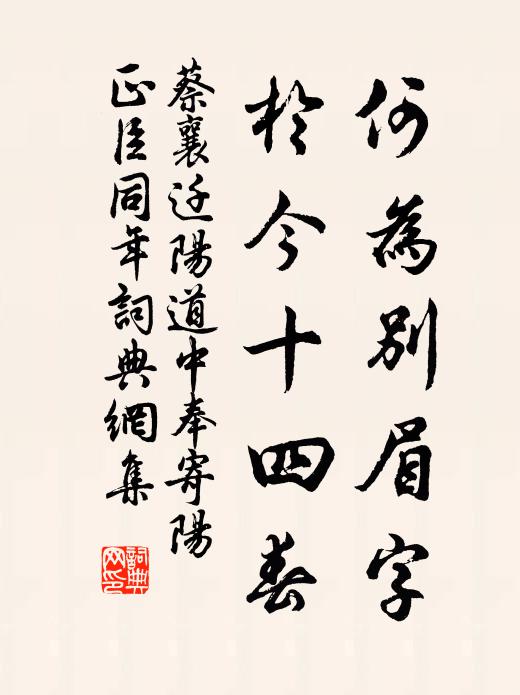 何為別眉字
於今十四春
蔡襄迁陽道中奉寄陽
正臣同年詞典網集
詞典網印